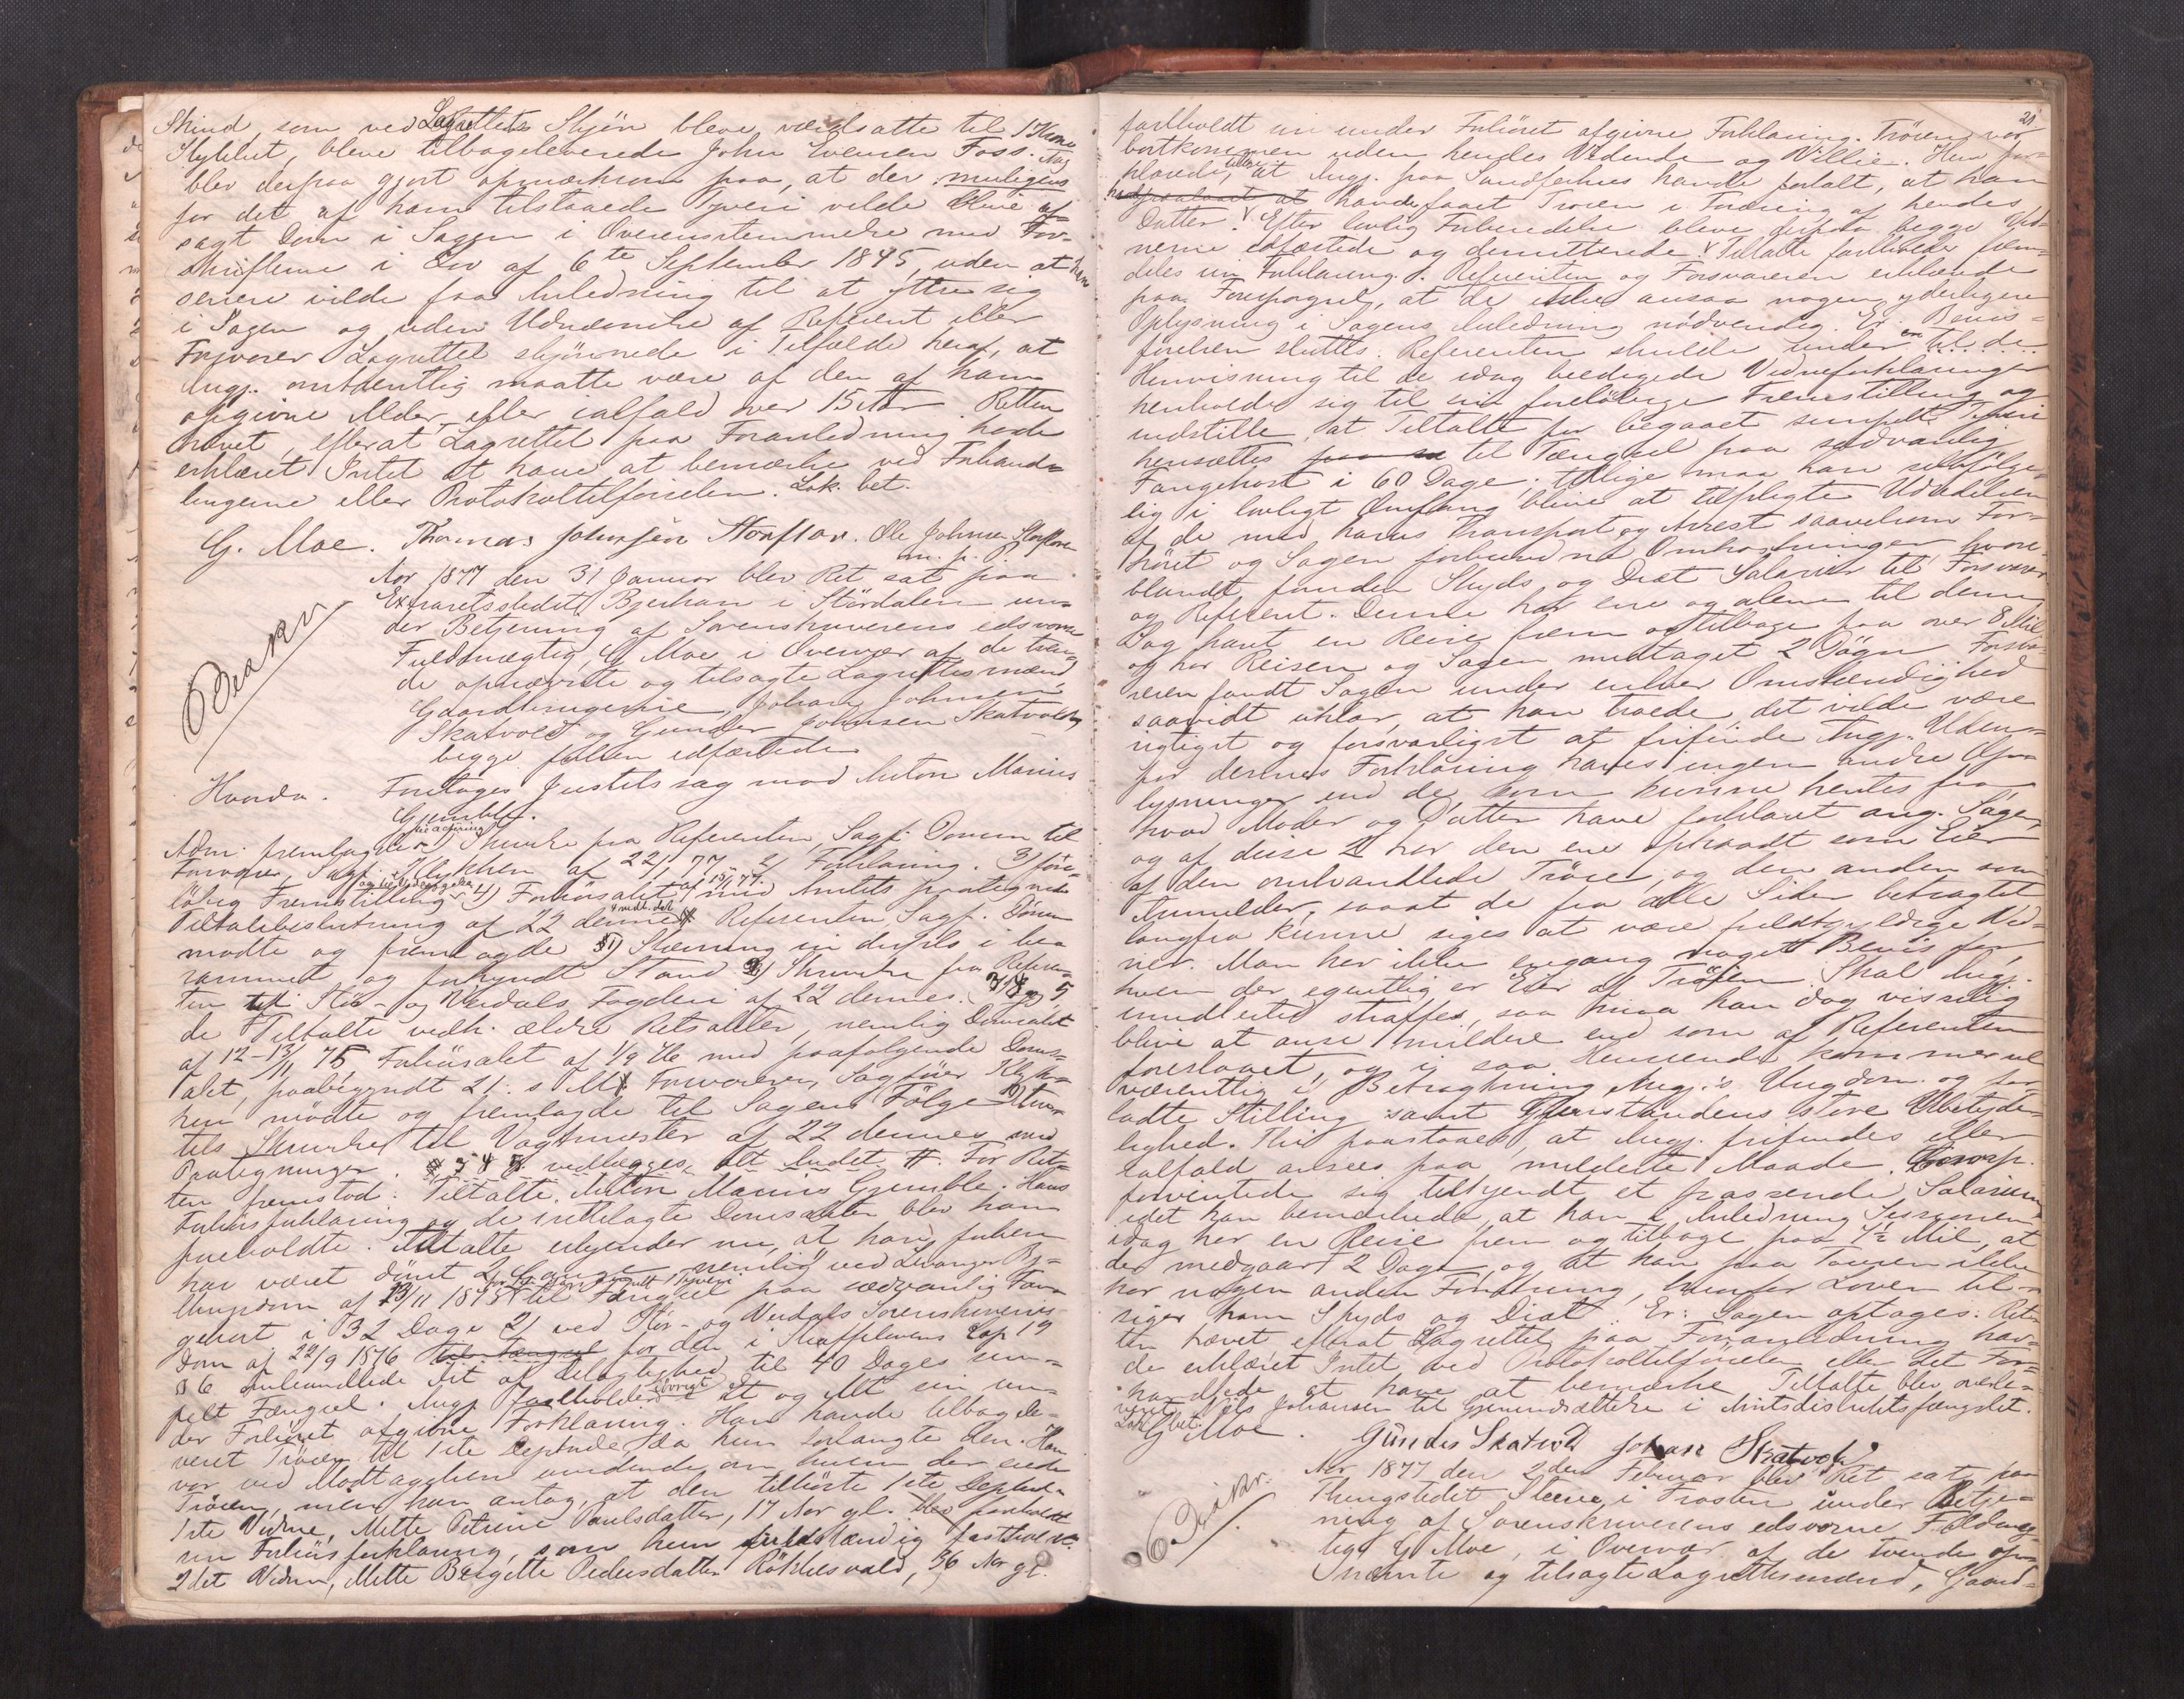 Skind, som ved Lagrettets Skjøn bleve værdsatte til 1 Krone
Stykket, bleve tilbageleverede John Evensen Foss.
blev derpaa gjort opmærksom paa, at der muligens
for det af ham tilstaaede Tyveri vilde blive af-
sagt Dom i Sagen i Overensstemmelse med For-
skrifterne i Lov af 6te September 1845, uden at han
senere vilde faa Anledning til at yttre sig
i Sagen og uden Udnævnelse af Referent eller
Forsvarer. Lagrettet skjønnede i Tilfælde heraf, at
Angj. omtrentlig maatte være af den af ham
opgivne Alder, eller ialfald over 15 Aar. Retten
hævet, efterat Lagrettet paa Foranledning havde
erklæret Intet at have at bemærke ved Forhand-
lingerne eller Protokoltilførselen. Lok. bet.
G. Moe. Thomas Johnsen Storflor. Ole Johnsen Storfloren
m. p. f.
Aar 1877 den 31 Januar blev Ret sat paa
Extraretsstedet Bjerkan i Stördalen un-
der Betjening af Sorenskriverens edsvorne
Fuldmægtig G. Moe i Overvær af de tven-
de opnævnte og tilsagte Lagrettesmænd
Gaardbrugerne Johan Johnsen
Skatvold og Gunder Johnsen Skatvold,
begge forhen edfæstede.
Hvorda. Foretoges Justitssag mod Anton Marius
Gjemble.
Adm. fremlagde 1) Skrivelse fra Referenten, Sagf. Dønem til
Forsvarer, Sagf. Klykken af 22/1 77 - 2) Forklaring. 3) fore-
løbig Fremstilling 4) Forhørsakt af 15/1 77. med Amtets paategnede
Tiltalebeslutning af 22 dennes Referenten Sagf. Dønem
mødte og fremlagde Stævning in duplo i bea
rammet og forkyndt Stand Skrivelse fra Referen-
ten til Stør- og Værdals Fogderi af 22 dennes.
de Tiltalte vedk. ældre Retsakter, nemlig Domsakt
af 12-13/11 75 Forhørsakt af 1/9 76 med paafølgende Doms-
akt, paabegyndt 21. s. M. Forsvareren, Sagfører Klyk-
ken mødte og fremlagde til Sagens Følge
tels Skrivelse til Vagtmester af 22 dennes med
Paategninger. vedlægges, alt ludet #. For Ret-
ten fremstod: Tiltalte, Anton Marius Gjemble. Hans
Forhørsforklaring og de irettelagte Domsakter blev ham
foreholdte. Tiltalte erkjender nu, at han forhen
har været dömt 2 Gange nemlig ved Levanger By-
thingsdom af 13/11 1875 til Fængsel paa sædvanlig Fan-
gekost i 32 Dage 2) ved Stør- og Verdals Sorenskriveries
Dom af 22/9 1876 for den i Straffelovens Cap 19
§ 6 omhandlede Art af delagtighed til 40 Dages sim-
pelt Fængsel. Angj. fastholder iövrigt at og Alt sin un-
der Forhöret afgivne Forklaring. Han havde tilbagele-
veret Trøien til 1ste Deponde, da hun forlangte den. Han
var ved Modtagelsen uvidende om hvem der eiede
Trøien, men han antog, at den tilhørte 1ste Depond.
1ste Vidne, Mette Petrine Paulsdatter, 17 Aar gl. blev foreholdt
sin Forhörsforklaring, som hun fuldstændig fastholdt.
2det Vidne, Mette Birgitte Pedersdatter Røkkesvald, 56 Aar gl.
21
fastholdt sin under Forhöret afgivne Forklaring. Trøien var
bortkommen uden hendes Vidende og Villie. Hun for-
klarede, at Angj. paa Sandferhus havde fortalt, at han
havde faaet Trøien i Foræring af hendes
Datter. Efter lovlig Forberedelse bleve derpaa begge Vid-
nerne edfæstede og demitterede. Tiltalte fastholder frem-
deles sin Forklaring. Referenten og Forsvareren erklærede
paa Forespørgsel, at de ikke ansaa nogen yderligere
Oplysning i Sagens Anledning nödvendig. Er. Bevis-
förelsen sluttes. Referenten skulde under en til de
Henvisning til de idag beedigede Vidneforklaringer
henholde sig til sin foreløbige Fremstilling og
indstille, at Tiltalte for begaaet simpelt Tyveri
hensættes til Fængsel paa sædvanlig
Fangekost i 60 Dage; tillige maa han selvfølge-
lig i lovligt Omfang blive at tilpligte Udredelsen
af de med hans Transport og Arrest saavelsom For-
höret og Sagen forbundne Omkostninger hvori-
blandt, foruden Skyds og Diæt Salarier til Forsvarer
og Referent. Denne har ene og alene til denne
Sag havt en Reise frem og tilbage paa over 8 Mil
og har Reisen og Sagen medtaget 2 Døgn. Forsva-
reren fandt Sagen under enhver Omstændighed
saavidt uklar, at han troede, det vilde være
rigtigst og forsvarligst at frifinde Angj. Uden-
for dennes Forklaring haves ingen andre Op-
lysninger end de som kunne hentes fra
hvad Moder og Datter have forklaret ang. Sagen,
og af disse 2 har den ene optraadt som Eier
af den omhandlede Trøie, og den anden som
Anmelder, saaat de fra alle Sider betragtet
langtfra kunne siges at være fuldgyldige Vid-
ner. Man har ikke engang noget Bevis for,
hvem der egentlig er Eier af Trøien. Skal Angj.
imidlertid straffes, saa maa han dog visselig
blive at anse mildere end som af Referenten
foreslaaet, og i saa Henseende kommer vel
væsentlig i Betragtning Angj.'s Ungdom og for-
ladte Stilling samt Gjenstandens store Ubetyde-
lighed. Thi paastaaes, at Angj. frifindes eller
ialfald ansees paa mildeste Maade.
forventede sig tilkjendt et passende Salarium
idet han bemærkede, at han i Anledning Sessionen
idag har en Reise frem og tilbage paa 4 1/2 Mil, at
der medgaar 2 Dage og at han paa Touren ikke
har nogen anden Forretning, hvorfor Loven til-
siger ham Skyds og Diæt. Er: Sagen optages. Ret-
ten hævet efterat Lagrettet paa Foranledning hav-
de erklæret Intet ved Protokoltilførselen eller det For-
handlede at have at bemærke. Tiltalte blev overle-
veret Nils Johansen til Gjenindsættelse i Amtsdistriktsfængslet.
Lok. bet.
G Moe. Gunder Skatvold Johan Skatvold
Aar 1877 den 2den Februar blev Ret sat paa
Thingstedet Steene, i Frosten under Betje-
ning af Sorenskriverens edsvorne Fuldmæg-
tig G Moe, i Overvær af de tvende op-
nævnte og tilsagte Lagrettesmænd, Gaard-